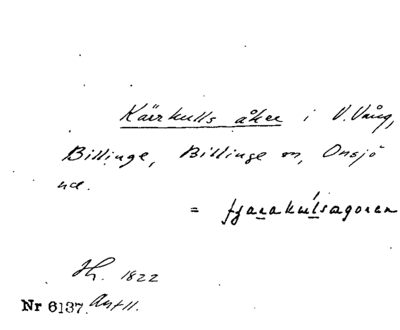 Kärrkulls åker i V. Vång,
Billinge, Billinge sn, Onsjö
hd.
= fjarakulsagoren
Sk. 1822
Nr 6137. Avt 11.